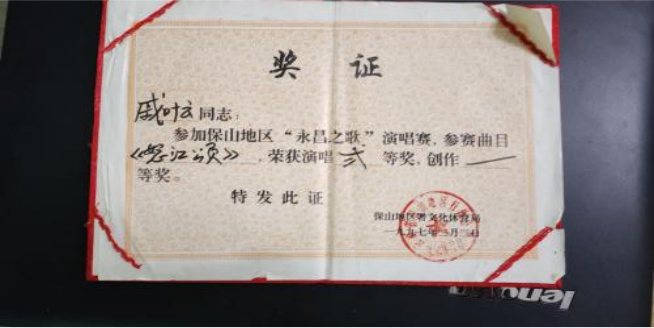 奖证
同志：
参加保山地区“永昌之歌”演唱赛，参赛曲目
《怒江颂》，荣获演唱贰等奖，创作一
等奖。
特发此证
保山地区署文化体育局
一九九七年二月二日
lenovo